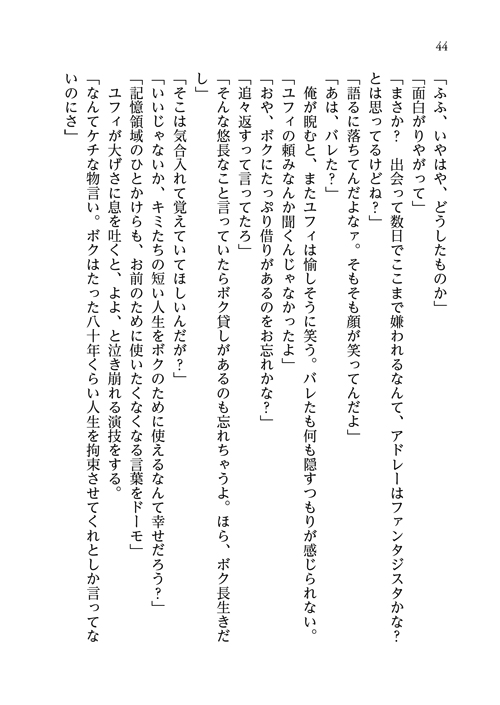 44
「ふふ、いやはや、どうしたものか」
「面白がりやがって」
「まさか？　出会って数日でここまで嫌われるなんて、アドレーはファンタジスタかな？
とは思ってるけどね？」
「語るに落ちてんだよなァ。そもそも顔が笑ってんだよ」
「あは、バレた？」
　俺が睨むと、またユフィは愉しそうに笑う。バレたも何も隠すつもりが感じられない。
「ユフィの頼みなんか聞くんじゃなかったよ」
「おや、ボクにたっぷり借りがあるのをお忘れかな？」
「追々返すって言ってたろ」
「そんな悠長なこと言っていたらボク貸しがあるのも忘れちゃうよ。ほら、ボク長生きだ
し」
「そこは気合入れて覚えていてほしいんだが？」
「いいじゃないか、キミたちの短い人生をボクのために使えるなんて幸せだろう？」
「記憶領域のひとかけらも、お前のために使いたくなくなる言葉をドーモ」
　ユフィが大げさに息を吐くと、よよ、と泣き崩れる演技をする。
「なんてケチな物言い。ボクはたった八十年くらい人生を拘束させてくれとしか言ってな
いのにさ」